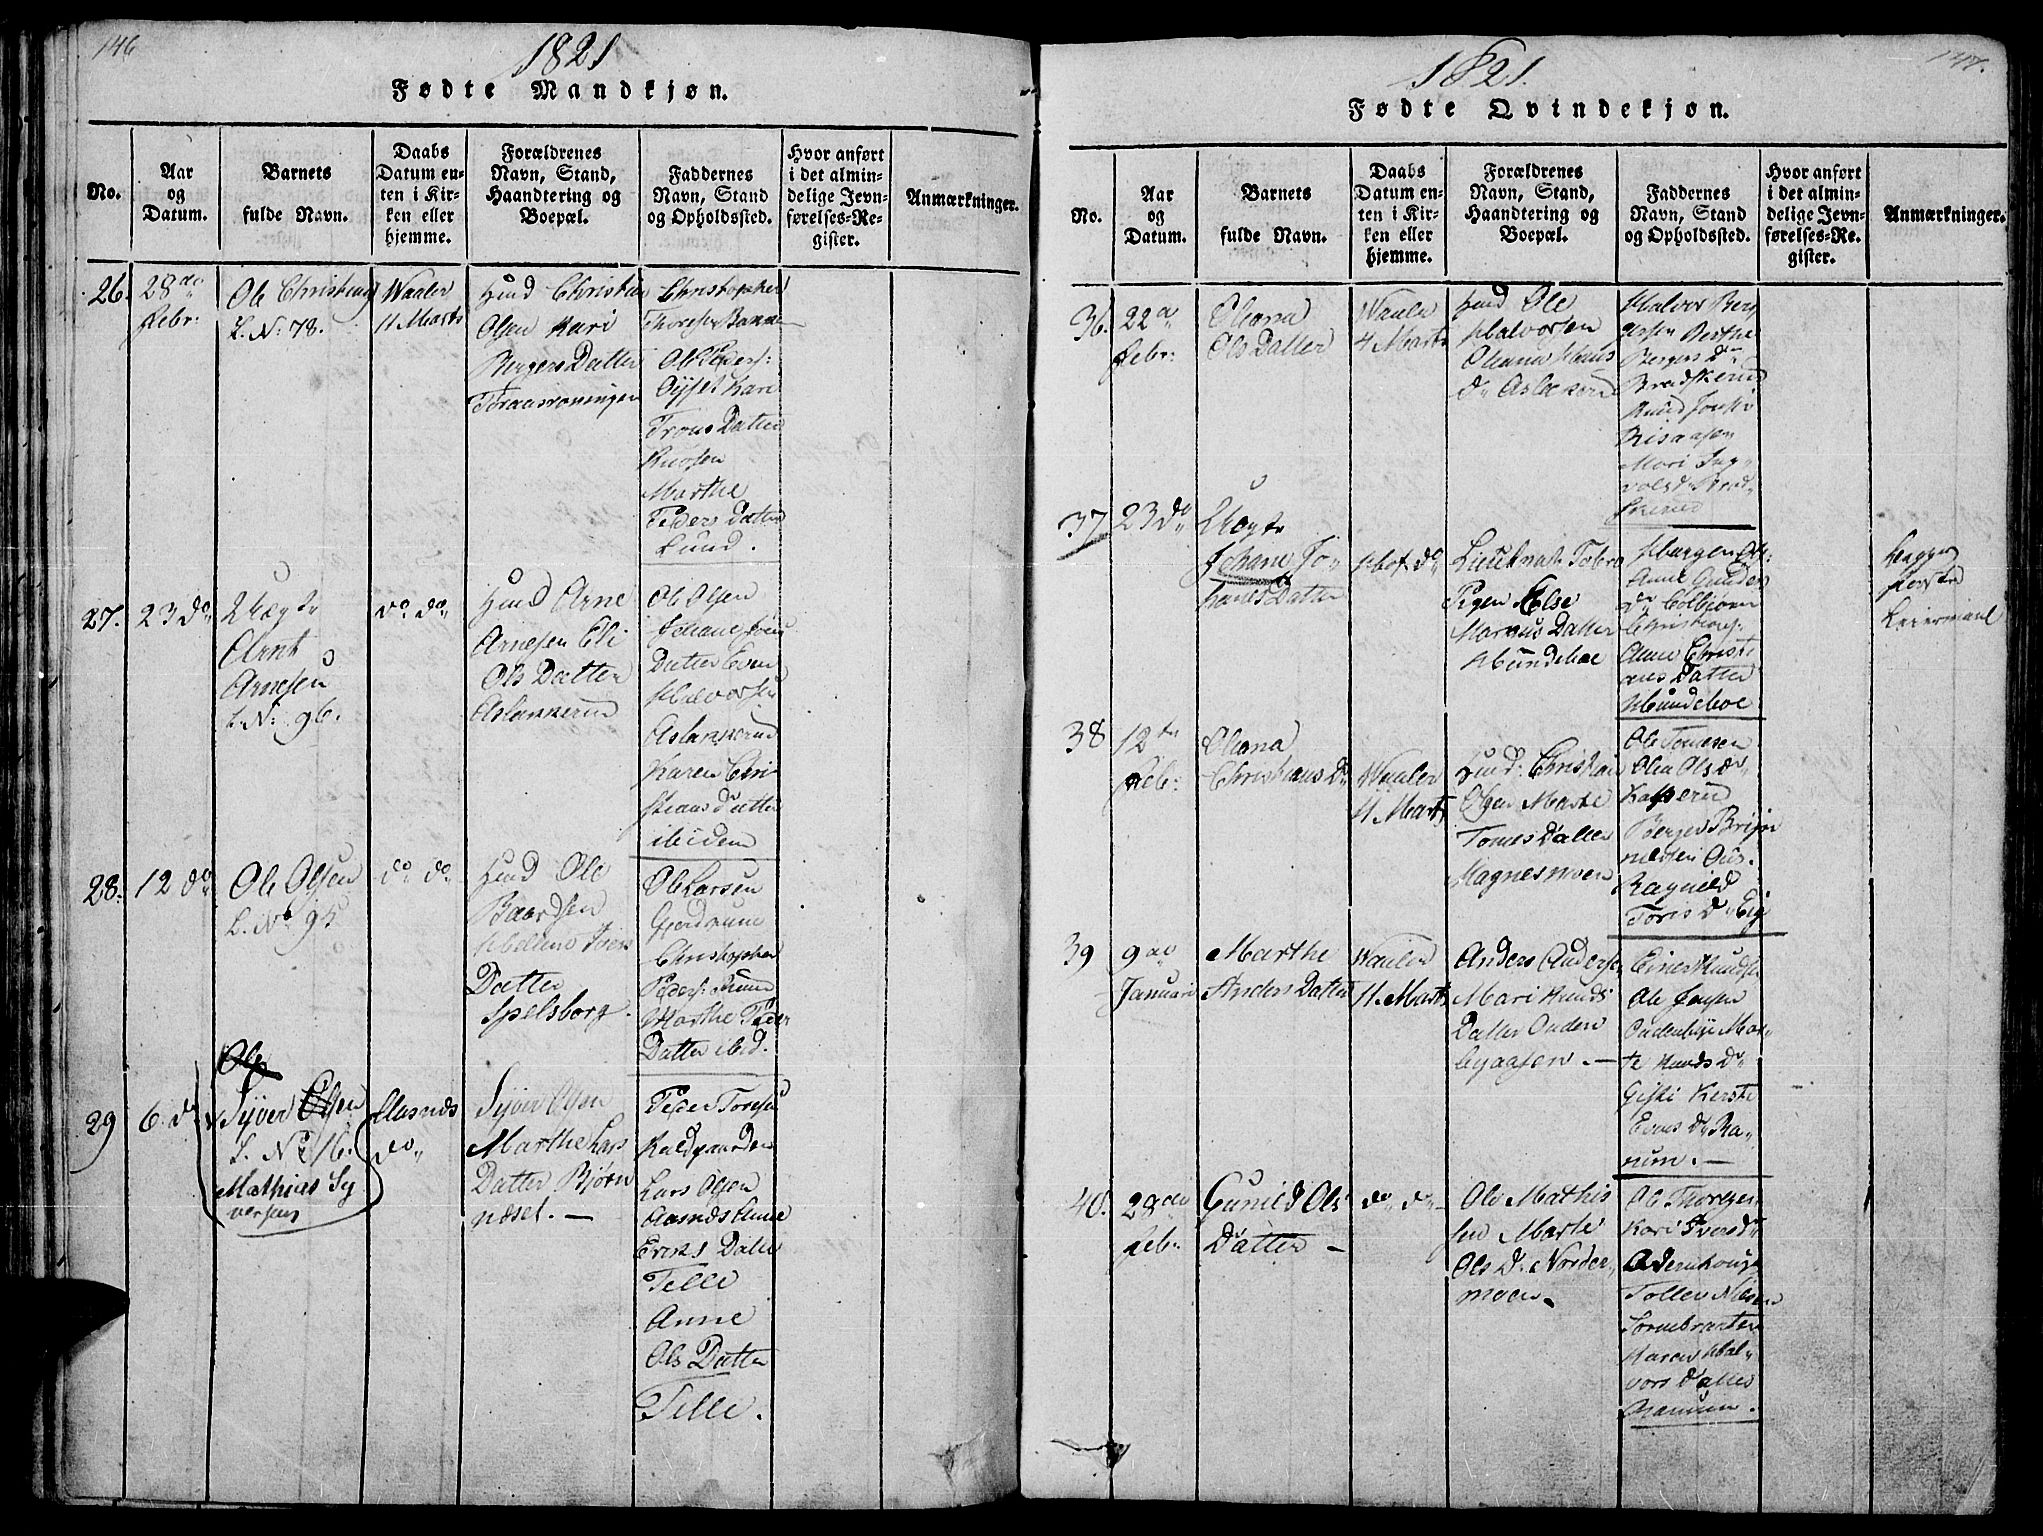 146
1821
Fødte Mandkjøn.
No.
Aar
og
Datum.
Barnets
fulde Navn.
Daabs
Datum en-
ten i Kir-
ken eller
hjemme.
Forældrenes
Navn, Stand,
Haandtering og
Boepæl.
Faddernes
Navn, Stand
og Opholdssted.
Hvor anført
i det almin-
delige Jevn-
førelses-Re-
gister.
Anmærkninger.
26.
28de
Febr:
Ole Christians
L. No: 78.
Waaler
11 Marts
Huusd Christian
Olsen Kari
Bergers Datter
Christopher
Ole Peders:
Kari
Trons Datter
Marthe
Peders Datter
Lund.
27.
23 do
Uægte
Arnt
Arnesen
L. No: 96.
do do
Huusd Arne
Arnesen Eli
Ols Datter
Aslakkerud
Ole Olsen
Johane
Datter Even
Halvorsen
Aslakkerud
Karen Chri
stians Datter
ibidem
28.
12 do
Ole Olsen
L. No 95
do do
Huusd Ole
Baardsen
Datter
Spelsborg.
Ole Larsen
Gjerdrum
Christopher
Peders:
Marthe Peder
Datter ibid.
29
6. do
Ole
Syver Olsen
L. No 16.
Mathias Sy
versen
Aasnæs
do
Syver Olsen
Marthe Lars
Datter Bjørn
næset. —
Peder Toresen
Kaldgaarden
Lars Olsen
Aasnæs Anne
Eriks Datter
Telle
Anne
Ols Datter
Telle.
147.
1821.
Fødte Qvindekjøn.
No.
Aar
og
Datum.
Barnets
fulde Navn.
Daabs
Datum en-
ten i Kir-
ken eller
hjemme.
Forældrenes
Navn, Stand,
Haandtering og
Boepæl.
Faddernes
Navn, Stand
og Opholdssted.
Hvor anført
i det almin-
delige Jevn-
førelses-Re-
gister.
Anmærkninger.
36.
22de
Febr:
Oleana
Ols Datter
Waaler
4 Marts
Huusd Ole
Halvorsen
Oleana Hans
Dr Aslakkerud
Halvor Ber
gersen Berthe
Bergers Dr
Bradskerud
Risaasen
Mari Ing
vols Dr Brad
skerud
37
23 do
Uægte
Johane Jo
hanes Datter
Hof do
Lieutenant
Pigen Else
Magnus Datter
Hundeboe
Anne Gunders
Dr Colbjørn
Christians:
Anne Christi
ans Datter
Hundeboe
begges
første
Leiermaal
38
12te
Febr:
Oleana
Christians Dr
Waaler
11 Marts
Huusd: Christian
Olsen Marte
Tomes Datter
Magnesmoen
Ole Tomesen
Olea Ols Dr
Berger Bryn
Ragnild
Toris Dr Eig
39
9de
Januari
Marthe
Anders Datter
Waaler
11. Marts
Anders Anderse
Mari Knuds
Datter Ouden
byaasen. —
Einer Knudse
Ole Jensen
Oudenbye Mar
te Knuds Dr
Kersti
Evens Dr Ra
num. —
40.
28de
Febr:
Gunild Ols
Datter —
do do
Ole Mathis
sen Marte
Ols Dr Norder
moen.
Ole Thoresen
Kari Ivers Dr
Tollev Nilsen
Karen Hal
vors Datter
Ranum.